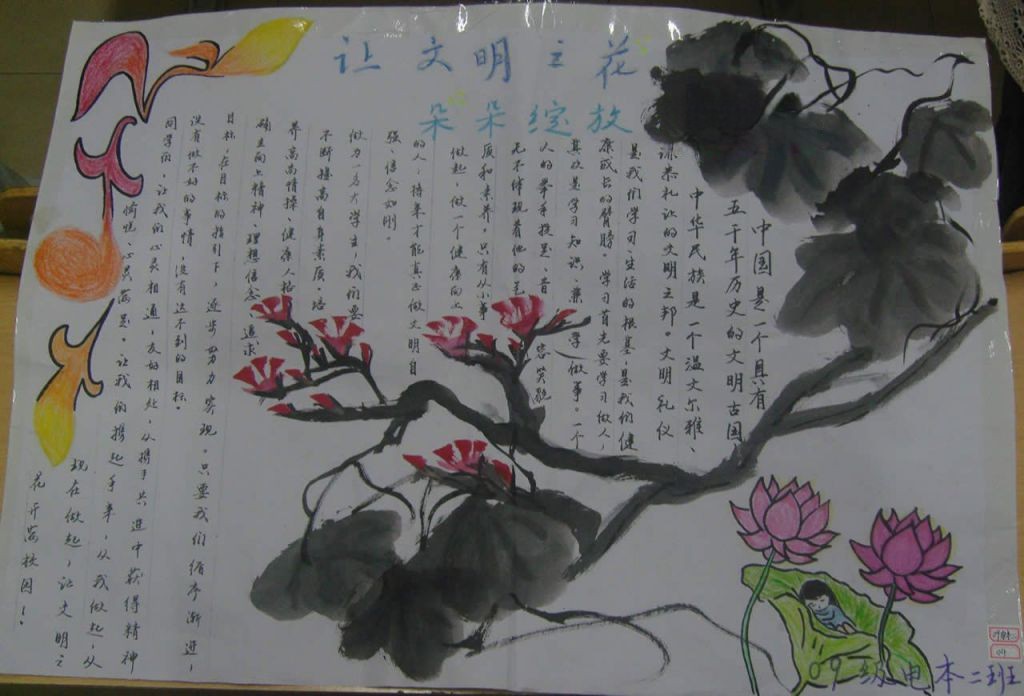 让文明之花
朵朵绽放
中国是一个具有
五千年历史的文明古国，
中华民族是一个温文尔雅、
谦恭礼让的文明之邦。文明礼仪
是我们学习、生活的根基，是我们健
康成长的臂膀。学习首先要学习做人，
其次是学习知识，兼学做事。一个
人的举手投足、音容笑貌
无不体现着他的
质和素养，只有从小事
做起，做一个健康向上
的人，将来才能真正做文明自
强、信念如刚。
做为一名大学生，我们要
不断提高自身素质，培
养高尚情操、健康人格
确立向上精神、理想信念、追求
目标，在目标的指引下，逐步努力实现。只要我们循序渐进，
没有做不好的事情，没有达不到的目标。
同学们，让我们心灵相通，友好相处，从携手共进中获得精神
愉悦、心灵
让我们携起手来，从我做起，从
现在做起，让文明之
花开满校园！
09级电本二班